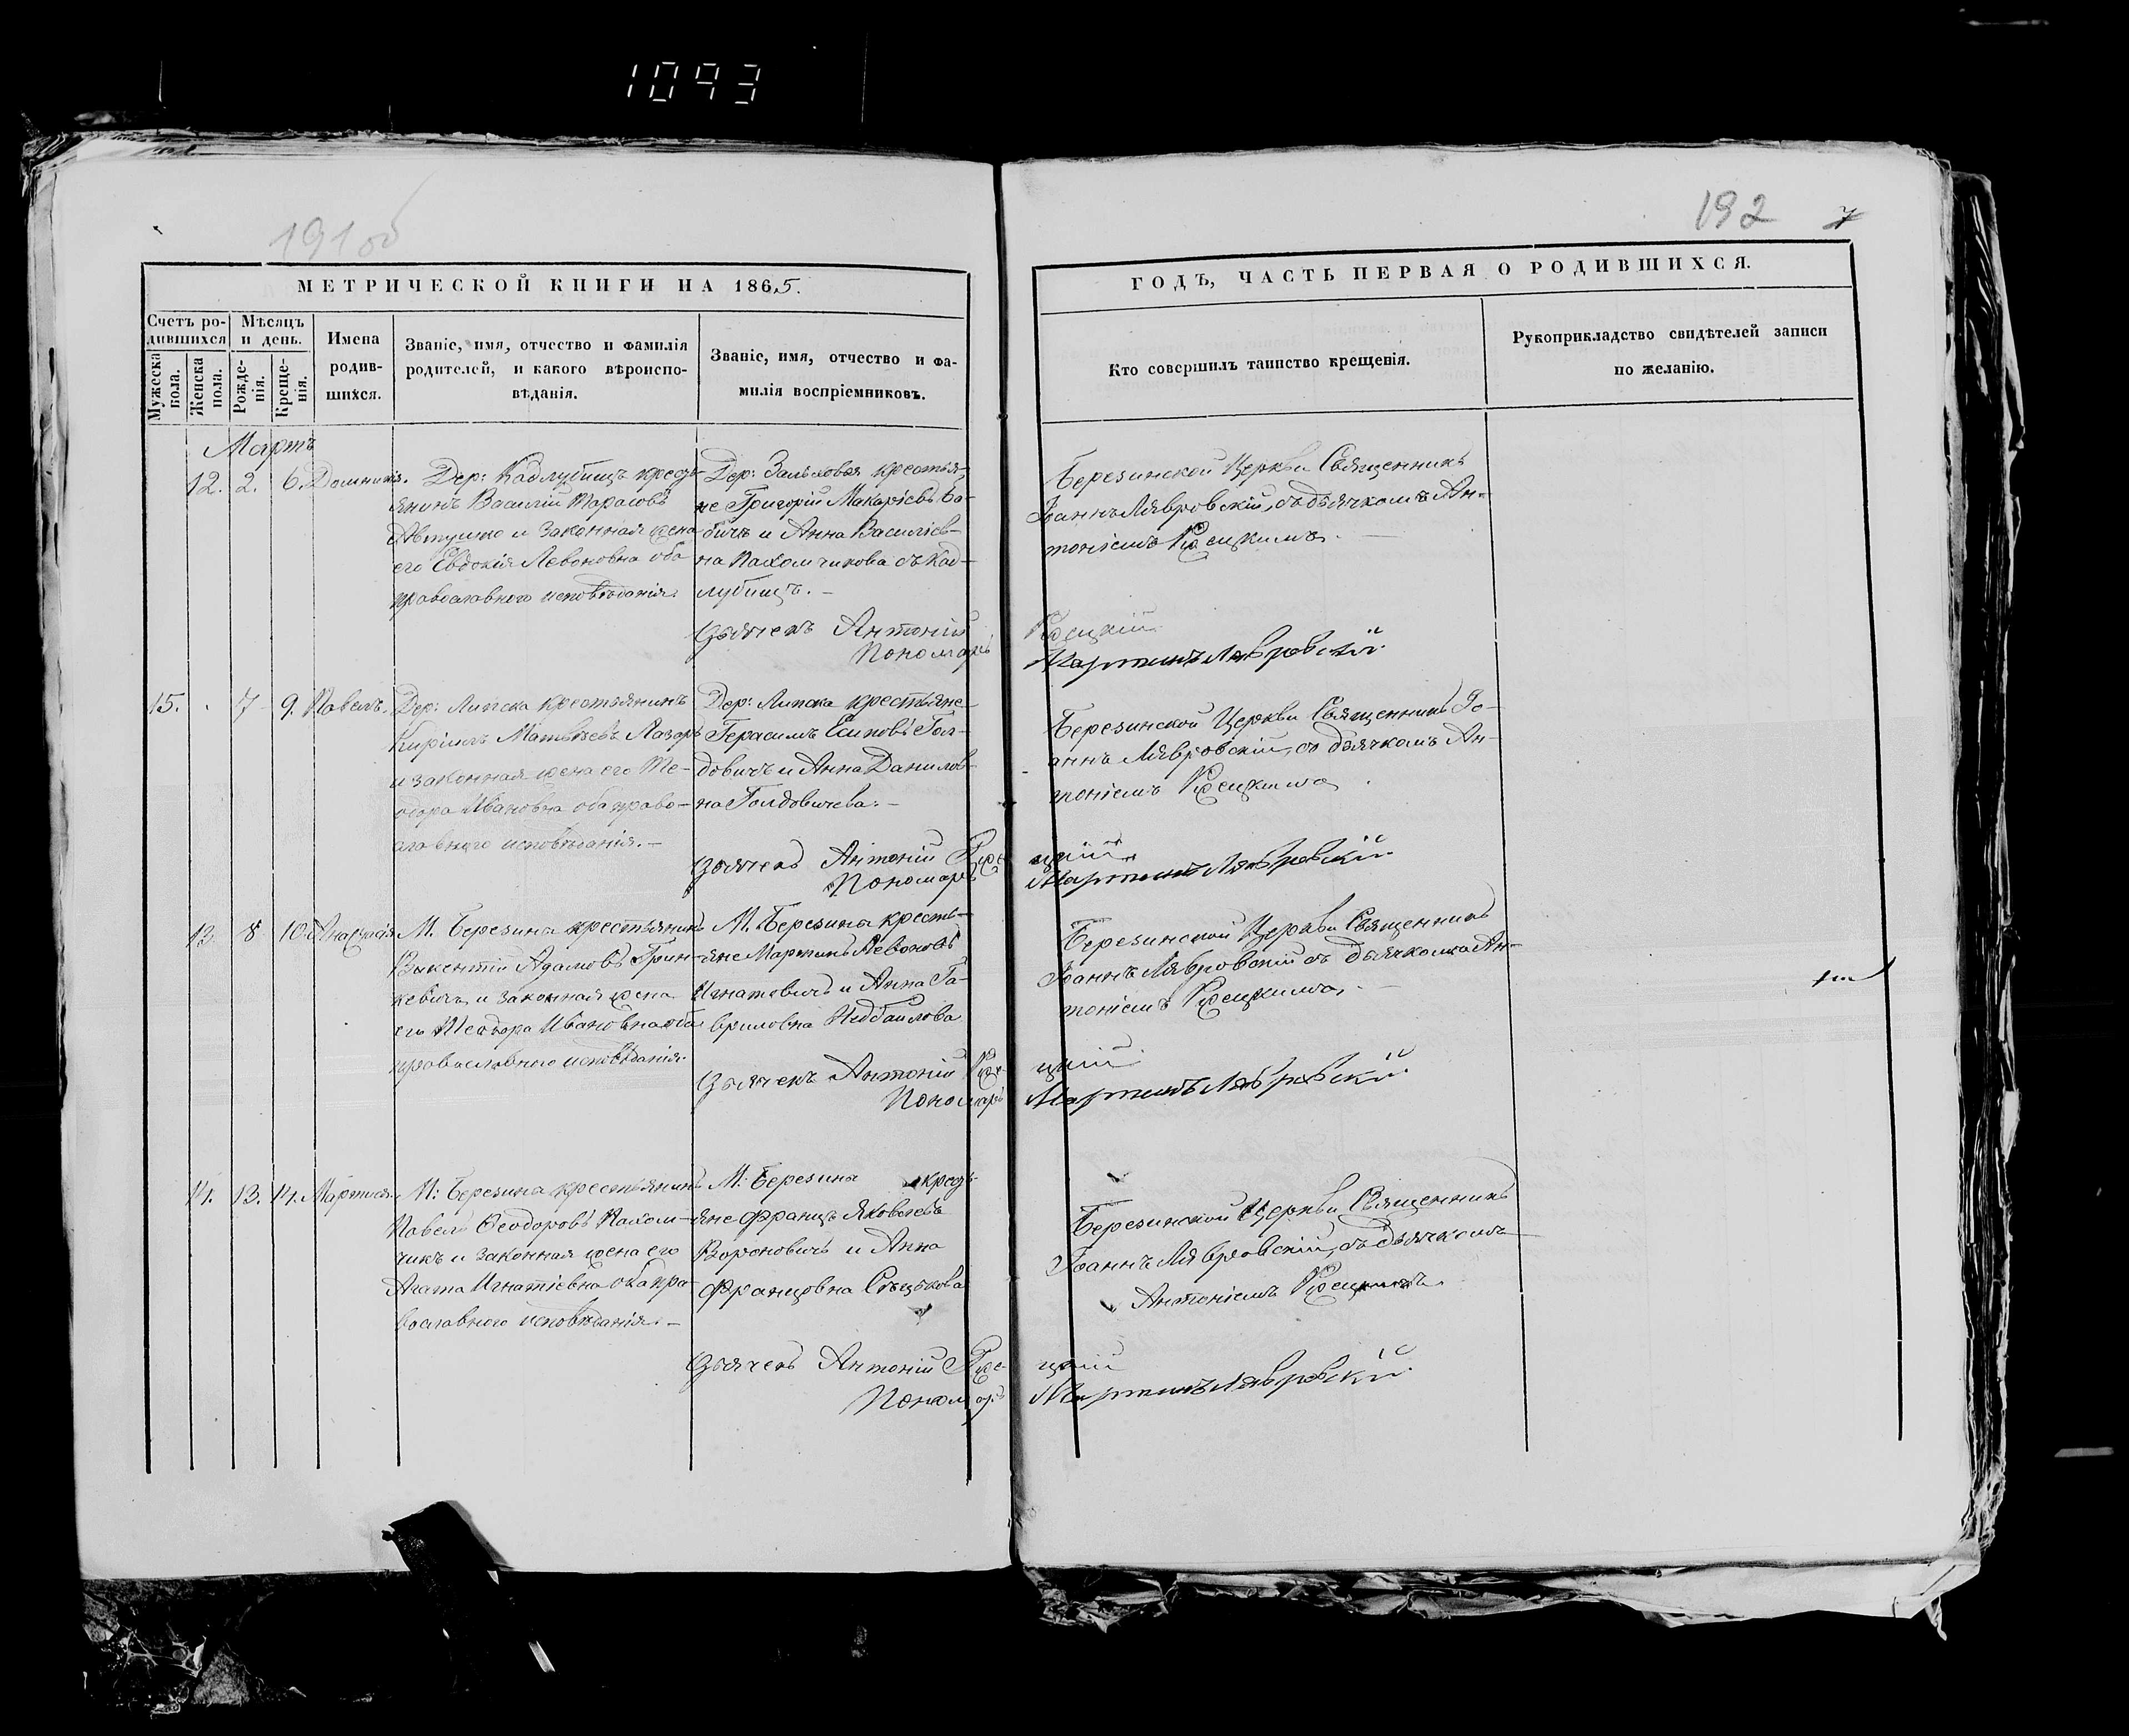 1093
191 об
192
7
МЕТРИЧЕСКОЙ КНИГИ НА 1865.
ГОДЪ, ЧАСТЬ ПЕРВАЯ О РОДИВШИХСЯ.
Счетъ ро-
дившихся
Мужеска
пола.
Женска
пола.
Мѣсяцъ
и день.
Рожде-
нія.
Креще-
нія.
Имена
родив-
шихся.
Званіе, имя, отчество и фамилія
родителей, и какого вѣроиспо-
вѣданія.
Званіе, имя, отчество и фа-
милія воспріемниковъ.
Кто совершилъ таинство крещенія.
Рукоприкладство свидѣтелей записи
по желанію.
Мартъ
12. 2. 6.
Дер: Кадлубищъ кресть-
янинъ Василій Тарасовъ
и законная жена
его Евдокія Левоновна оба
православного исповѣданія.
Дер: крестья-
не Григорій Макаріевъ Ба-
бичъ и Анна Василіев-
на Пахомчикова съ Кад-
лубищъ.
Березинской Церкви Священникъ
Іоаннъ Лявровскій, съ дьячкомъ Ан-
тоніемъ
Дьячекъ Антоній
Пономарь Мартинъ Лявровскій
15. 7 9. Павелъ.
Дер: Липска крестьянинъ
Кирилъ Матвѣевъ Лазарь
и законная жена его Те-
одора Ивановна оба право-
славного исповѣданія.
Дер: Липска крестьяне
Герасимъ Есиповъ Гол-
довичъ и Анна Данилов-
на Голдовичева.
Березинской Церкви Священникъ Іо-
аннъ Лявровскій, съ дьячкомъ Ан-
тоніемъ
Дьячекъ Антоній
Пономарь Мартинъ Лявровскій
13 8 10 Анастасія
М. Березина крестьянинъ
Викентій Адамовъ Грин-
кевичъ и законная жена
его Теодора Ивановна оба
православного исповѣданія.
М. Березина кресть-
яне Мартинъ Левоновъ
Игнатовичъ и Анна Га-
вриловна
Березинской Церкви Священникъ
Іоаннъ Лявровскій съ дьячкомъ Ан-
тоніемъ
Дьячекъ Антоній
Пономарь Мартинъ Лявровскій
14. 13. 14.
М: Березина крестьянинъ
Павелъ Ѳеодоровъ Пахом-
чикъ и законная жена его
Агата Игнатіевна оба пра-
вославного исповѣданія.
М: Березина кресть-
яне Францъ Яковлевъ
Вороновичъ и Анна
Францовна
Березинской Церкви Священникъ
Іоаннъ Лявровскій, съ дьячкомъ
Антоніемъ
Дьячекъ Антоній
Пономарь Мартинъ Лявровскій